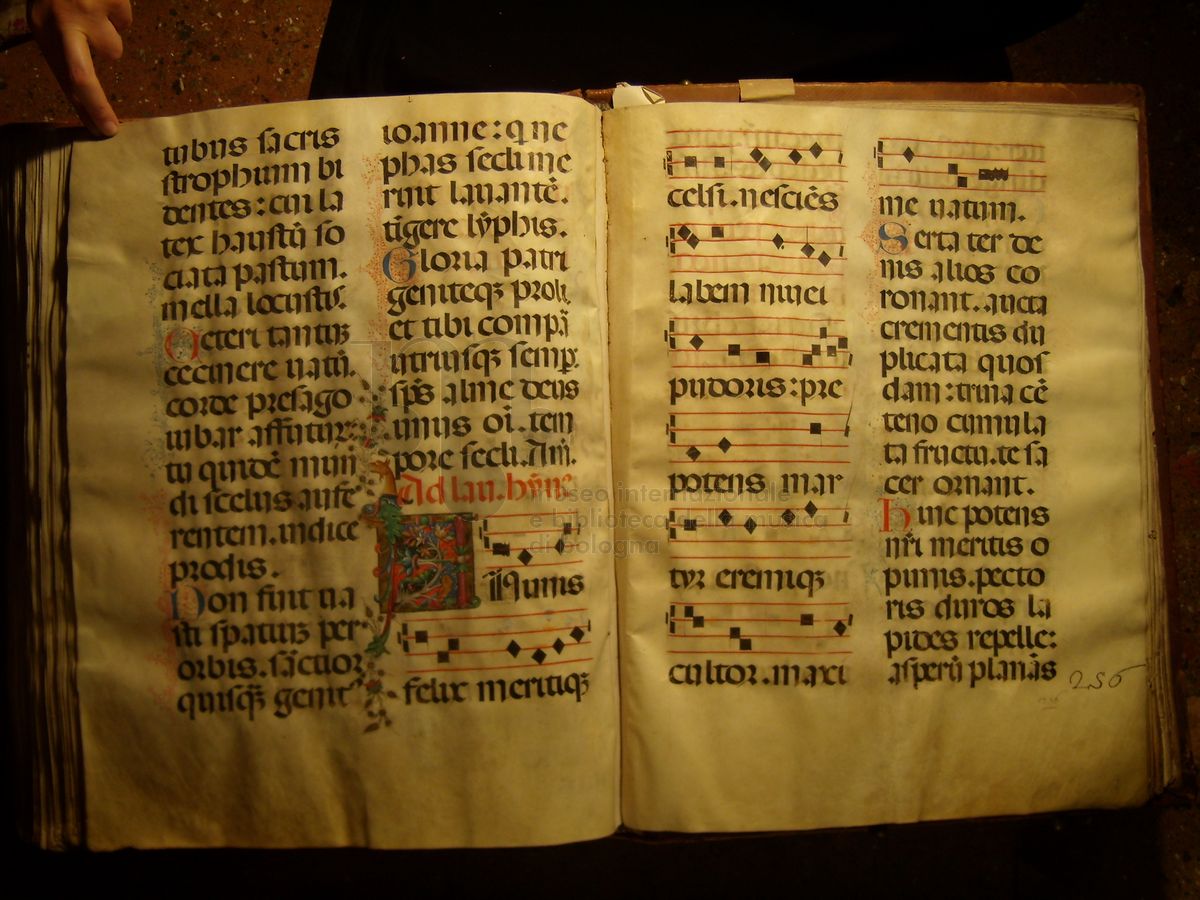 tubus sacris
strophium bi
dentes: cui la
tex haustū so
ciata pastum.
mella locustis.
Ceteri tantuꝫ
cecinere vatū.
corde presago
iubar affuturꝫ:
tu quidē mun
di scelus aufe
rentem. indice
prodis.
Non fuit va
sti spatiuꝫ per
orbis. sāctior
quisqꝫ genit9
ioanne: q ne
phas secli me
ruit lauantē.
tīgere lȳphis.
Gloria patri
geniteqꝫ proli
et tibi compā
utriusqꝫ semꝑ.
sp̄s alme deus
unus oī. tem
pore secli. Am̄.
Ad lau. hȳne
Nimis
felix meritiqꝫ
celsi. nesciēs
labem nivei
pudoris: pre
potens mar
tyr eremiqꝫ
cultor. maxi
me vatum.
Serta ter de
nis alios co
ronant. aucta
crementis du
plicata quos
dam: trina cē
teno cumula
ta fructu. te sa
cer ornant.
Hinc potens
nr̄i meritis o
pimis. pecto
ris duros la
pides repelle:
asperū planās
256
museo internazionale
e biblioteca della musica
di bologna